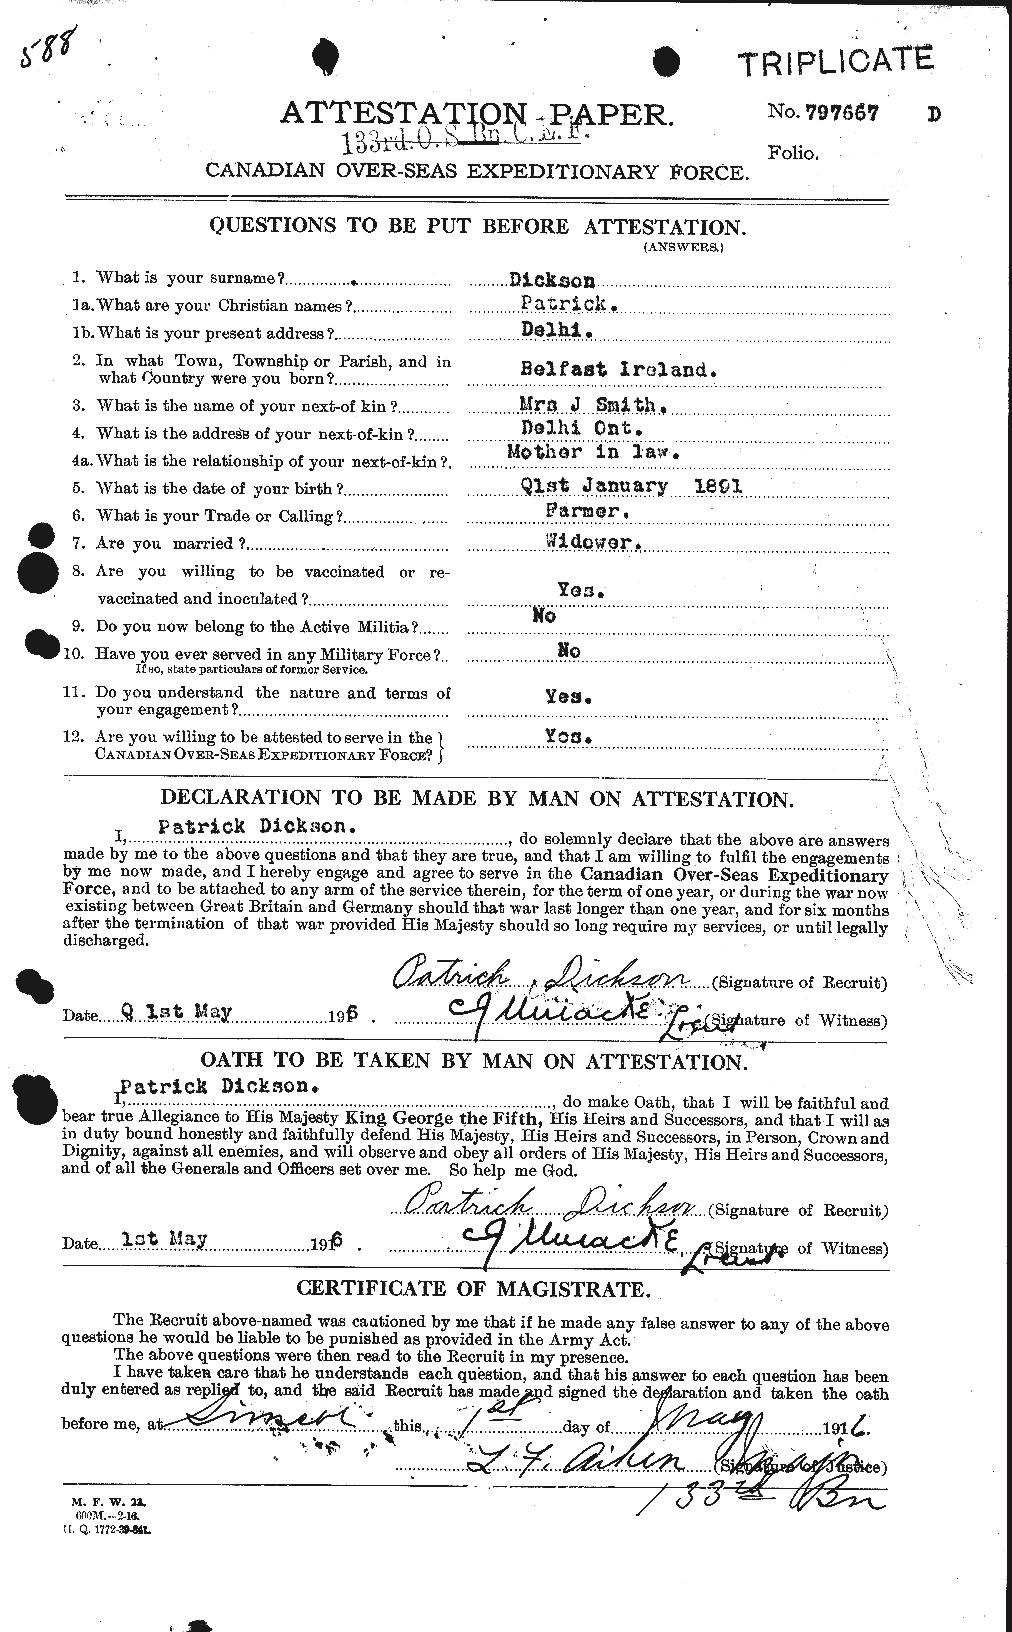 588
TRIPLICATE
ATTESTATION PAPER.
No. 797667 D
133rd. O. S. Bn. C. E. F.
Folio.
CANADIAN OVER-SEAS EXPEDITIONARY FORCE.
QUESTIONS TO BE PUT BEFORE ATTESTATION.
(ANSWERS.)
1. What is your surname? Dickson
1a. What are your Christian names? Patrick.
1b. What is your present address? Delhi.
2. In what Town, Township or Parish, and in
what Country were you born? Belfast Ireland.
3. What is the name of your next-of kin? Mrs J Smith.
4. What is the address of your next-of-kin? Delhi Ont.
4a. What is the relationship of your next-of-kin? Mother in law.
5. What is the date of your birth? Q1st January 1891
6. What is your Trade or Calling? Farmer.
7. Are you married? Widower.
8. Are you willing to be vaccinated or re-
vaccinated and inoculated? Yes.
9. Do you now belong to the Active Militia? No
10. Have you ever served in any Military Force? No
If so, state particulars of former Service.
11. Do you understand the nature and terms of
your engagement? Yes.
12. Are you willing to be attested to serve in the
CANADIAN OVER-SEAS EXPEDITIONARY FORCE? Yes.
DECLARATION TO BE MADE BY MAN ON ATTESTATION.
I, Patrick Dickson., do solemnly declare that the above are answers
made by me to the above questions and that they are true, and that I am willing to fulfil the engagements
by me now made, and I hereby engage and agree to serve in the Canadian Over-Seas Expeditionary
Force, and to be attached to any arm of the service therein, for the term of one year, or during the war now
existing between Great Britain and Germany should that war last longer than one year, and for six months
after the termination of that war provided His Majesty should so long require my services, or until legally
discharged.
Patrick Dickson (Signature of Recruit)
Date Q 1st May 1916. Lieut (Signature of Witness)
OATH TO BE TAKEN BY MAN ON ATTESTATION.
I, Patrick Dickson., do make Oath, that I will be faithful and
bear true Allegiance to His Majesty King George the Fifth, His Heirs and Successors, and that I will as
in duty bound honestly and faithfully defend His Majesty, His Heirs and Successors, in Person, Crown and
Dignity, against all enemies, and will observe and obey all orders of His Majesty, His Heirs and Successors,
and of all the Generals and Officers set over me. So help me God.
Patrick Dickson (Signature of Recruit)
Date 1st May 1916. Lieut (Signature of Witness)
CERTIFICATE OF MAGISTRATE.
The Recruit above-named was cautioned by me that if he made any false answer to any of the above
questions he would be liable to be punished as provided in the Army Act.
The above questions were then read to the Recruit in my presence.
I have taken care that he understands each question, and that his answer to each question has been
duly entered as replied to, and the said Recruit has made and signed the declaration and taken the oath
before me, at Simcoe this 1st day of May 1916.
L F. Aiken Major (Signature of Justice)
133rd Bn
M. F. W. 23.
600M.-2-16.
H. Q. 1772-39-841.